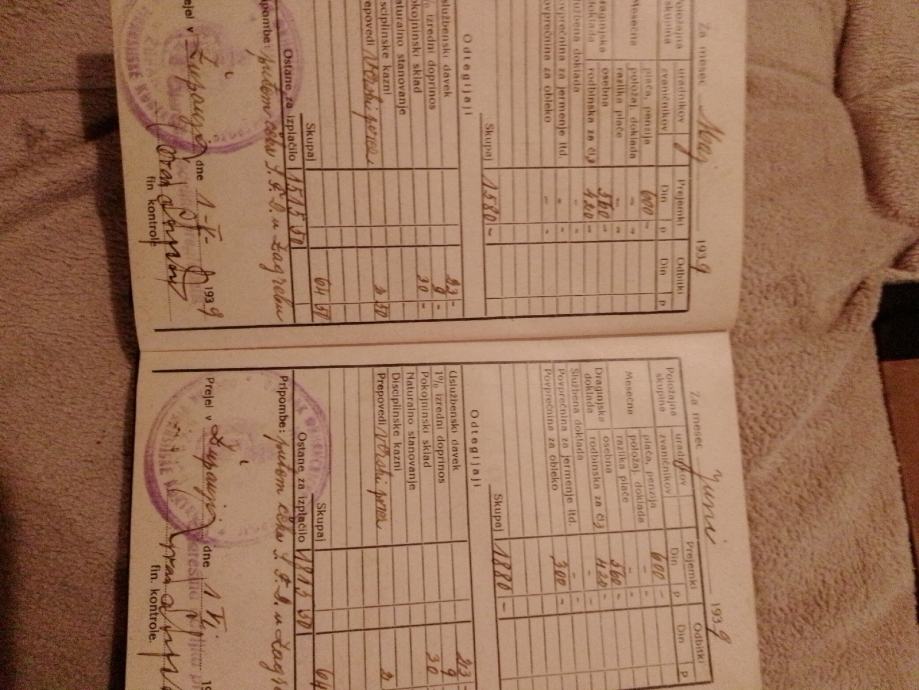 Za mesec Maj 1939
Položajna skupina
uradnikov
zvaničnikov
Prejemki
Odbitki
Din p Din p
Mesečna
plača, penzija 600 -
položaj. doklada
razlika plače
Draginjska doklada
osebna 560 -
rodbinska za čl. 420 -
Službena doklada
Povprečnina za jermenje itd.
Povprečnina za obleko
Skupaj 1580 -
Odtegljaji
Uslužbenski davek 23 -
1% izredni doprinos 9 -
Pokojninski sklad 30 -
Naturalno stanovanje
Disciplinske kazni
Prepovedi 2 50
Skupaj 64 50
Ostane za izplačilo 1515 50
Pripombe: putem čeka u Zagrebu
Prejel v Županja dne 1-V- 1939
fin. kontrole
Za mesec Juni 1939
Položajna skupina
uradnikov
zvaničnikov
Prejemki
Odbitki
Din p Din p
Mesečna
plača, penzija 600 -
položaj. doklada
razlika plače
Draginjska doklada
osebna 560 -
rodbinska za čl. 420 -
Službena doklada
Povprečnina za jermenje itd. 300 -
Povprečnina za obleko
Skupaj 1880 -
Odtegljaji
Uslužbenski davek 23
1% izredni doprinos 9
Pokojninski sklad 30
Naturalno stanovanje
Disciplinske kazni
Prepovedi 2
Skupaj 64
Ostane za izplačilo 1813 50
Pripombe: putem čeka u
Prejel v Županja dne 1 VI
fin. kontrole.